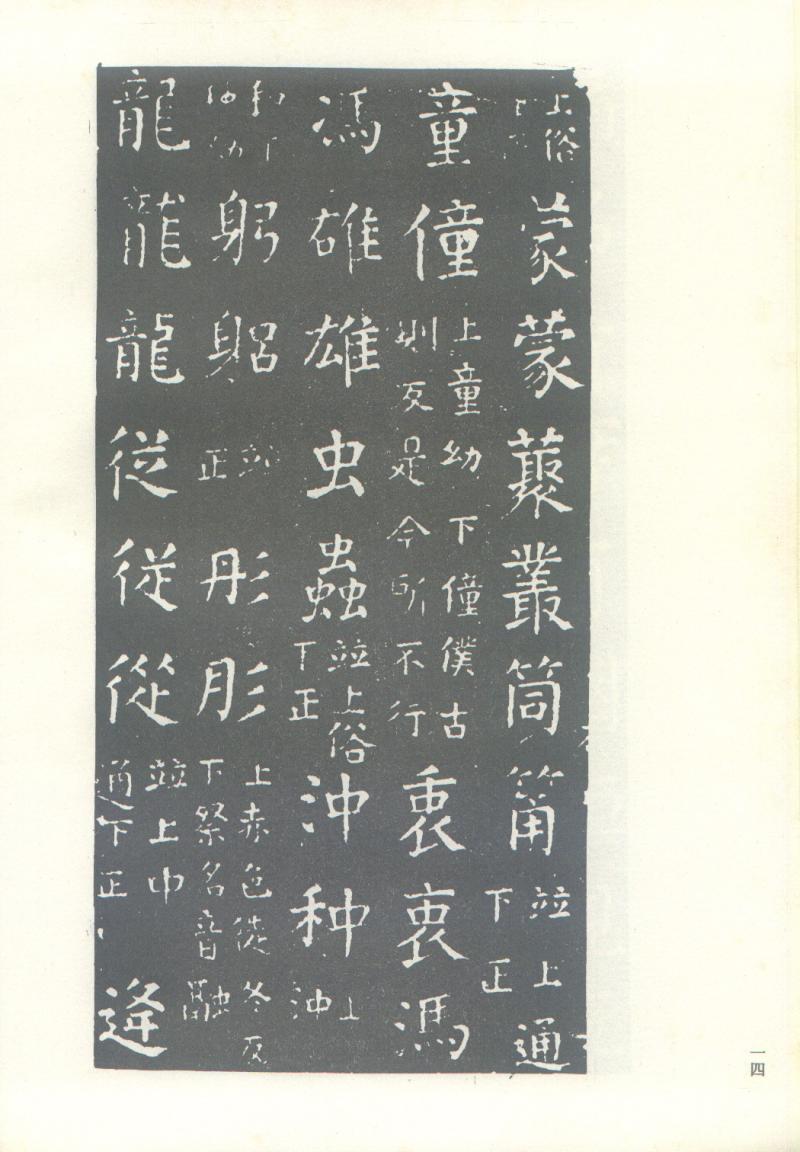 上俗下正蒙蒙藂叢筒筩並上通下正
童僮上童幼下僮僕古則反是今所不行衷衷馮
馮雄雄虫蟲並上俗下正沖种上沖
和下沖幼躬躳並正彤肜上赤色徒冬反下祭名音融
龍龍龍従従從並上中通下正逄